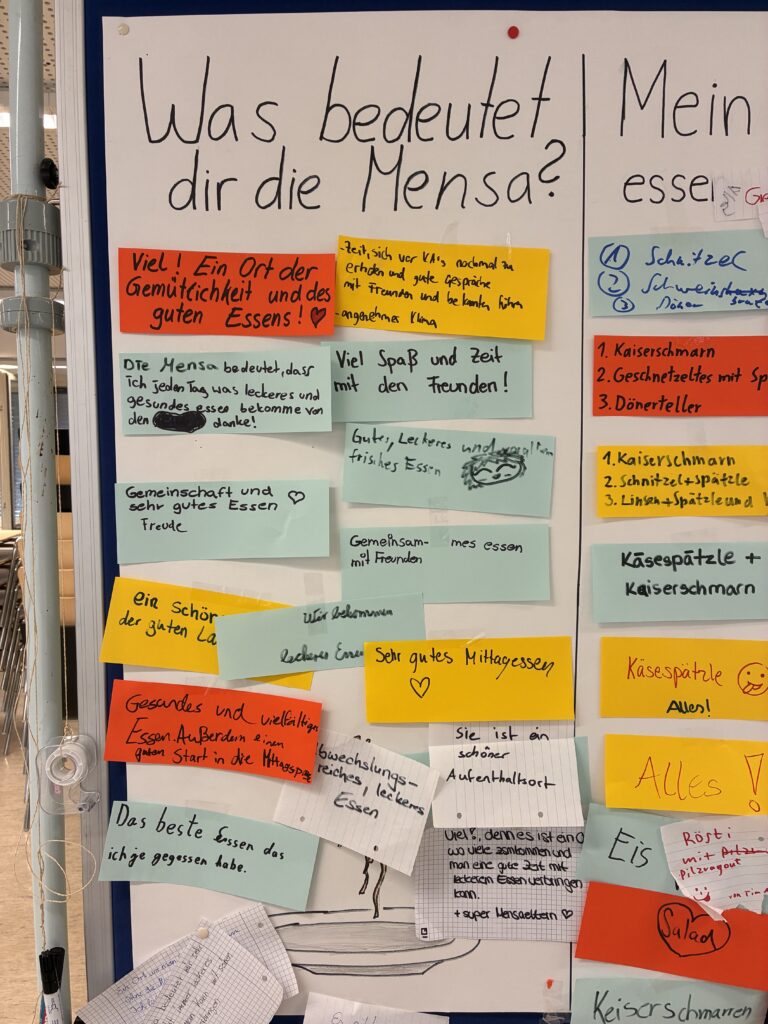 Was bedeutet
dir die Mensa?
Viel! Ein Ort der
Gemütlichkeit und des
guten Essens!
-Zeit, sich vor KA's nochmal zu
erholen und gute Gespräche
mit Freunden und bekannten führen
-angenehmes Klima
Die Mensa bedeutet, dass
ich jeden Tag was leckeres und
gesundes essen bekomme von
den danke!
Viel Spaß und Zeit
mit den Freunden!
Gutes, Leckeres und
frisches Essen
Gemeinschaft und
sehr gutes Essen
Freude
Gemeinsam- mes essen
mit Freunden
ein schön
der guten La
Wir bekommen
leckeres Essen
Sehr gutes Mittagessen
Gesundes und vielfältiges
Essen. Außerdem einen
guten Start in die Mittagspause
bwechslungs-
reiches, leckeres
Essen
Sie ist ein
schöner
Aufenthaltsort
Das beste Essen das
ich je gegessen habe.
Viel!, denn es ist ein O
wo viele zsmkommen und
man eine gute Zeit mit
leckerem Essen verbringen
kann.
+ super Mensaeltern
Mein
essen
① Schnitzel
②
③ Döner
1. Kaiserschmarn
2. Geschnetzeltes mit Sp
3. Dönerteller
1. Kaiserschmarn
2. Schnitzel + Spätzle
3. Linsen + Spätzle und
Käsespätzle +
Kaiserschmarn
Käsespätzle
Alles!
Alles!
Eis
Rösti
mit
pilzragout
Salad
Keiserschmarren